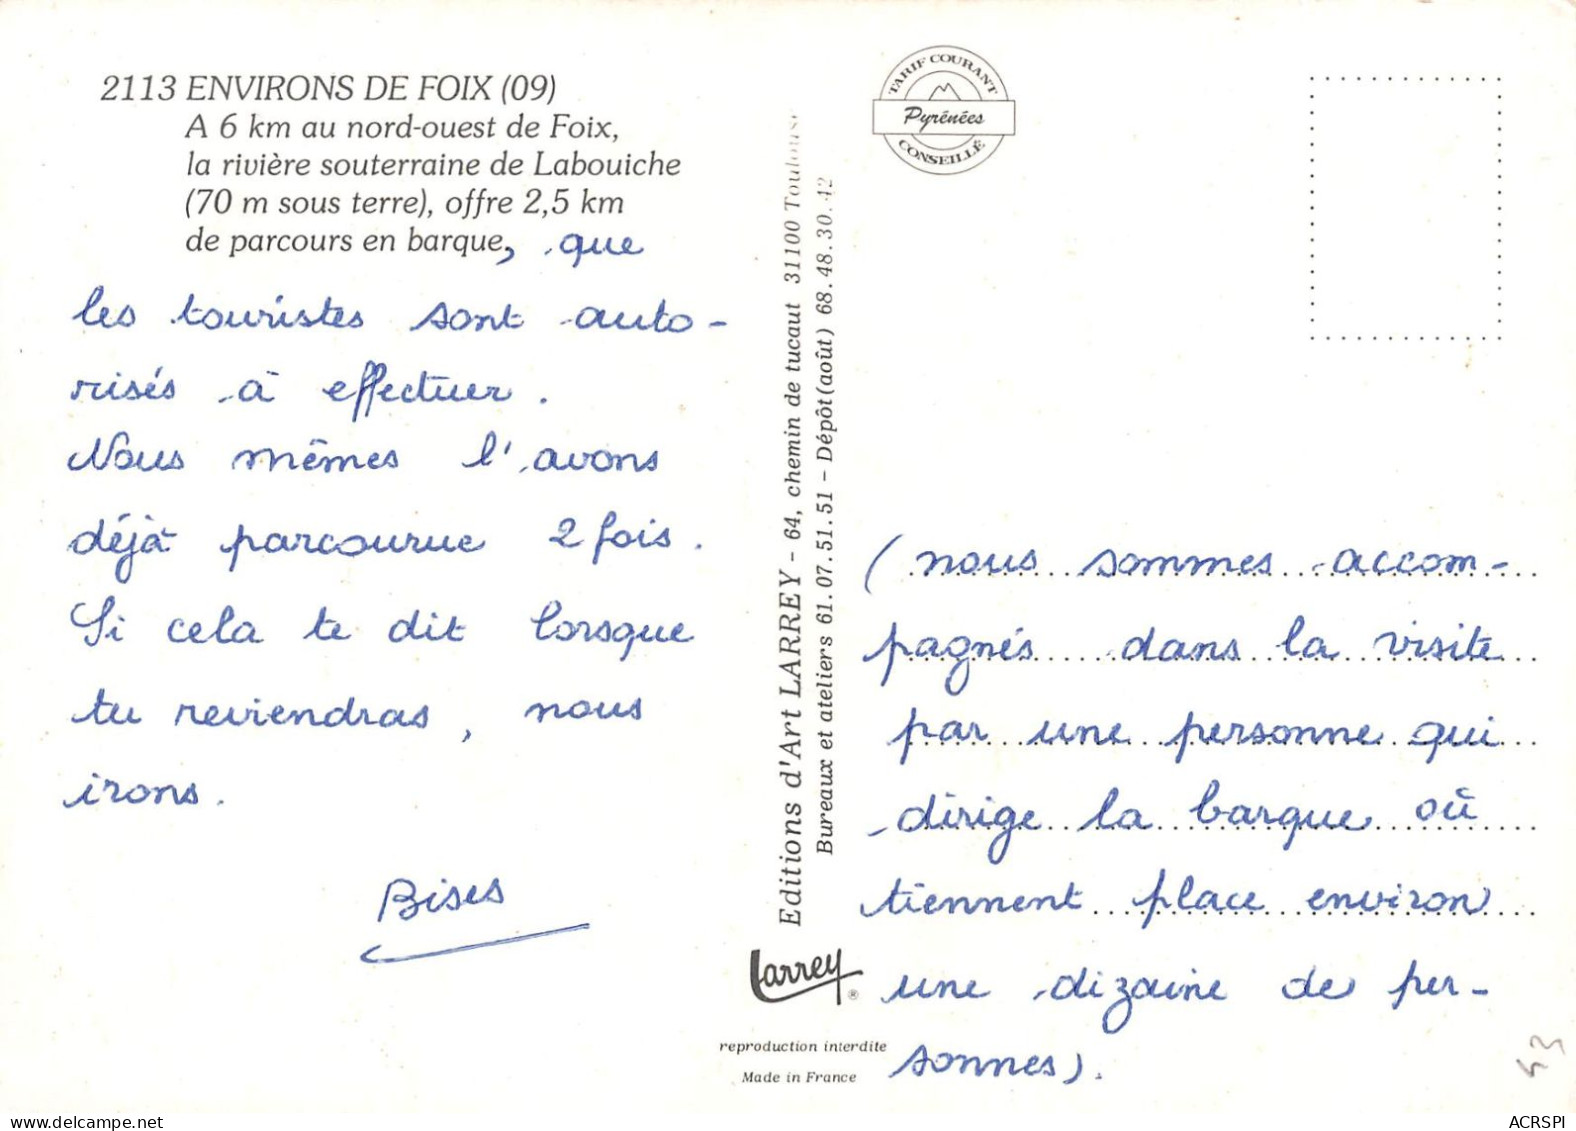 2113 ENVIRONS DE FOIX (09)
A 6 km au nord-ouest de Foix,
la rivière souterraine de Labouiche
(70 m sous terre), offre 2,5 km
de parcours en barque, que
les touristes sont auto-
risés à effectuer.
Nous mêmes l'avons
déjà parcourue 2 fois.
Si cela te dit lorsque
tu reviendras, nous
irons.
Bises
Editions d'Art LARREY - 64, chemin de tucaut 31100 Toulouse
Bureaux et ateliers 61.07.51.51 - Dépôt (août) 68.48.30.42
Larrey ®
reproduction interdite
Made in France
TARIF COURANT
Pyrénées
CONSEILLÉ
(nous sommes accom-
pagnés dans la visite
par une personne qui
dirige la barque où
tiennent place environ
une dizaine de per-
sonnes).
43
ACRSPI